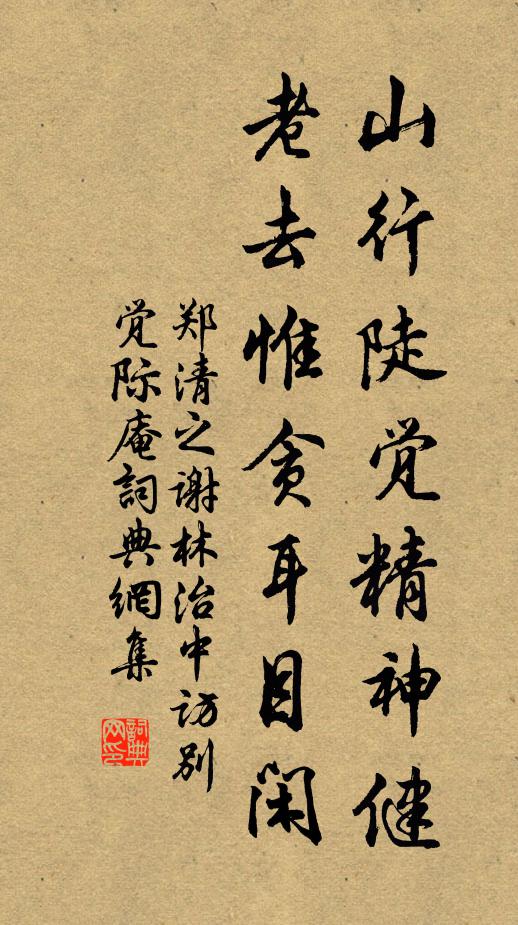 山行陡觉精神健
老去惟贪耳目闲
郑清之谢林治中访别
觉际庵詞典網集
詞典网印